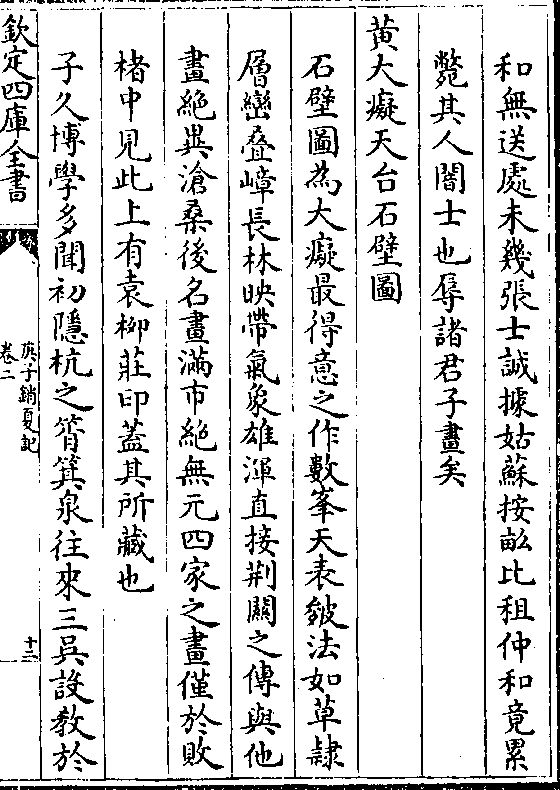 和無送處未幾張士誠據姑蘇按畝比租仲和竟累
斃其人闇士也辱諸君子畫矣
黄大癡天台石壁圖
石壁圖為大癡最得意之作數峯天表皴法如草隷
層巒叠嶂長林映帶氣象雄渾直接荆關之傳與他
畫絶異滄桑後名畫滿市絶無元四家之畫僅於敗
楮中見此上有袁柳莊印蓋其所藏也
子久博學多聞初隱杭之筲箕泉往來三吳設教於
欽定四庫全書
庚子銷夏記
卷二
十二